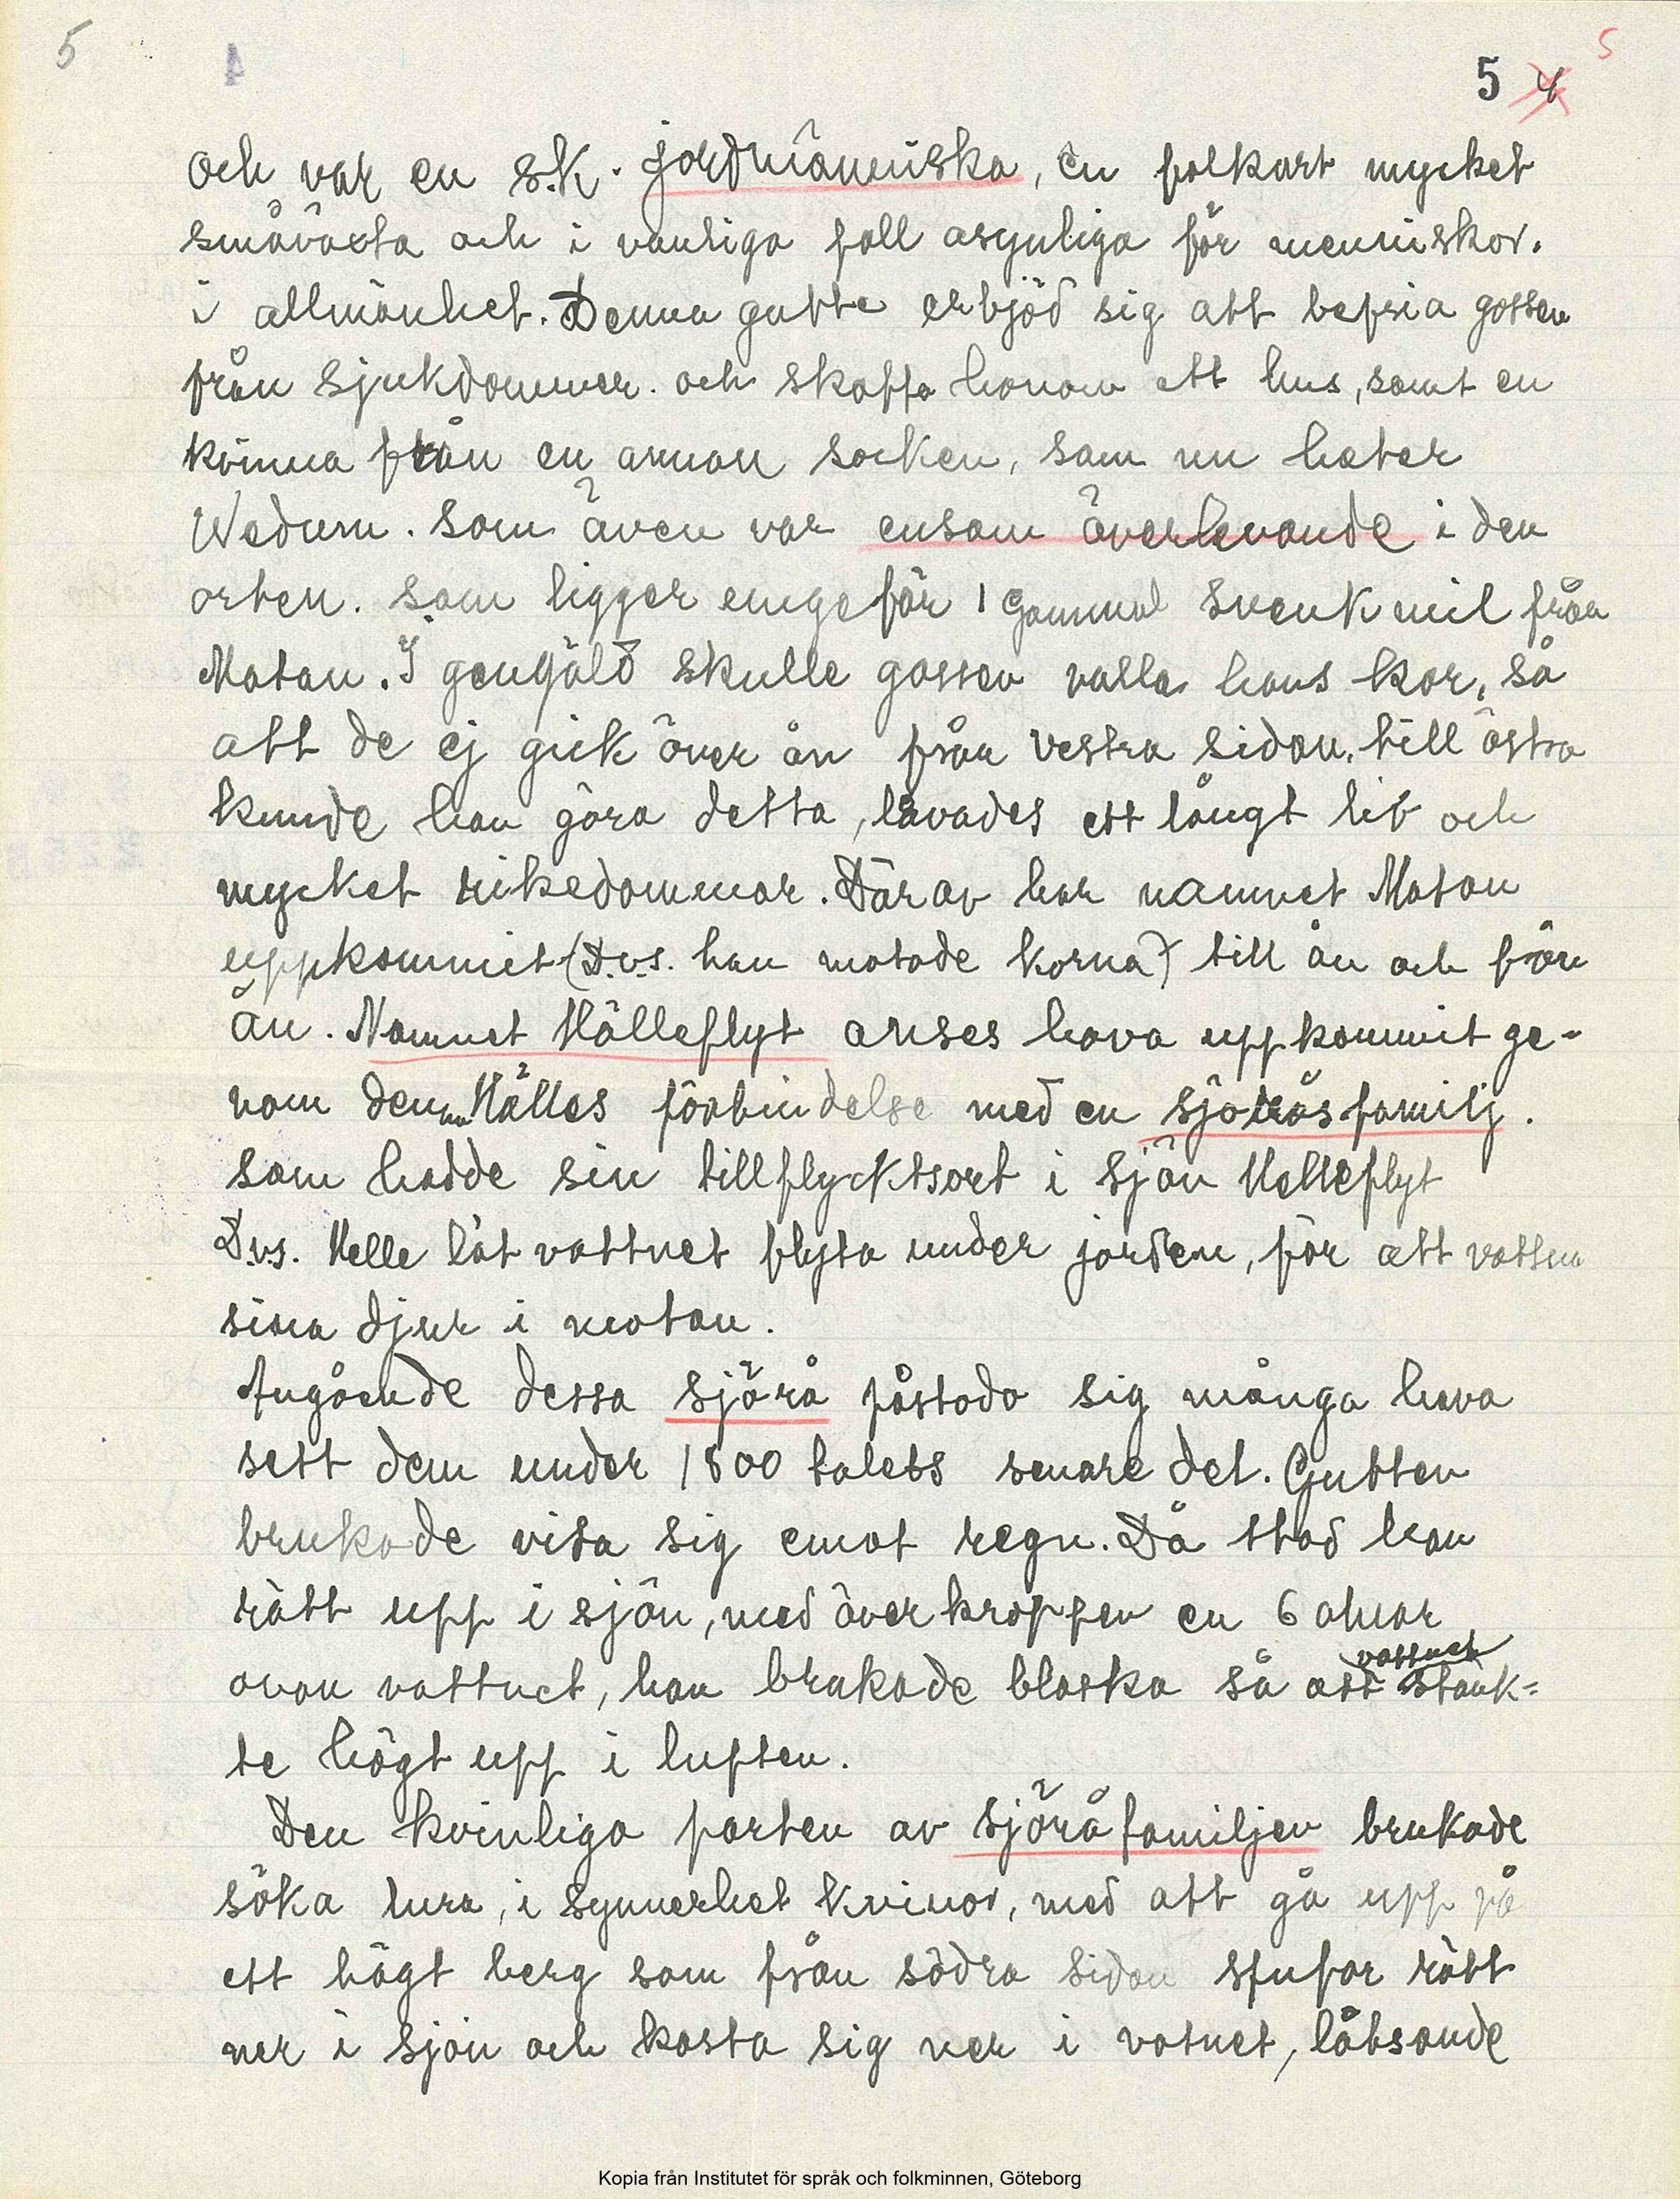 5 4 5 4 5
och var en s.k. jordmänniska, en folkart mycket
småväxta och i vanliga fall osynliga för menniskor.
i allmänhet. Denna gubbe erbjöd sig att befria gossen
från sjukdommer. och skaffa honom ett hus, samt en
kvinna från en annan socken, som nu heter
Wedum. som även var ensam överlevande i den
orten. som ligger emgefär 1 gammal svensk mil från
Motan. I gengäld skulle gossen valla hans kor, så
att de ej gick över ån från vestra sidan, till östra
kunde han göra detta, lovades ett långt liv och
mycket rikedommar. Därav har namnet Motan
uppkommit (D.v.s. han motade korna) till ån och från
ån. Namnet Hälleflyt anses hava uppkommit ge-
nom denna Hälles förbindelse med en sjöråsfamilj.
som hadde sin tillflycktsort i sjön Helleflyt
D.v.s. Helle låt vattnet flyta under jorden, för att vattna
sina djur i motan.
Angående dessa sjörå påstodo sig många hava
sett dem under 1800 talets senare del. Gubben
brukade visa sig emot regn. Då stod han
rätt upp i sjön, med överkroppen en 6 alnar
ovan vattnet, han brukade blaska så att vattnet stänk=
te högt upp i luften.
Den kvinliga parten av sjöråfamiljen brukade
söka lura, i synnerhet kvinor, med att gå upp på
ett högt berg som från södra sidan stupar rätt
ner i sjön och kasta sig ner i vatnet, låtsande
Kopia från Institutet för språk och folkminnen, Göteborg